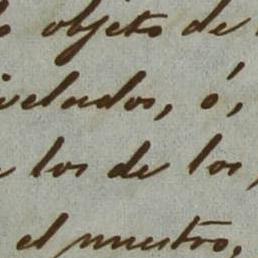 objeto de
velados, ó,
los de los,
el nuestro,